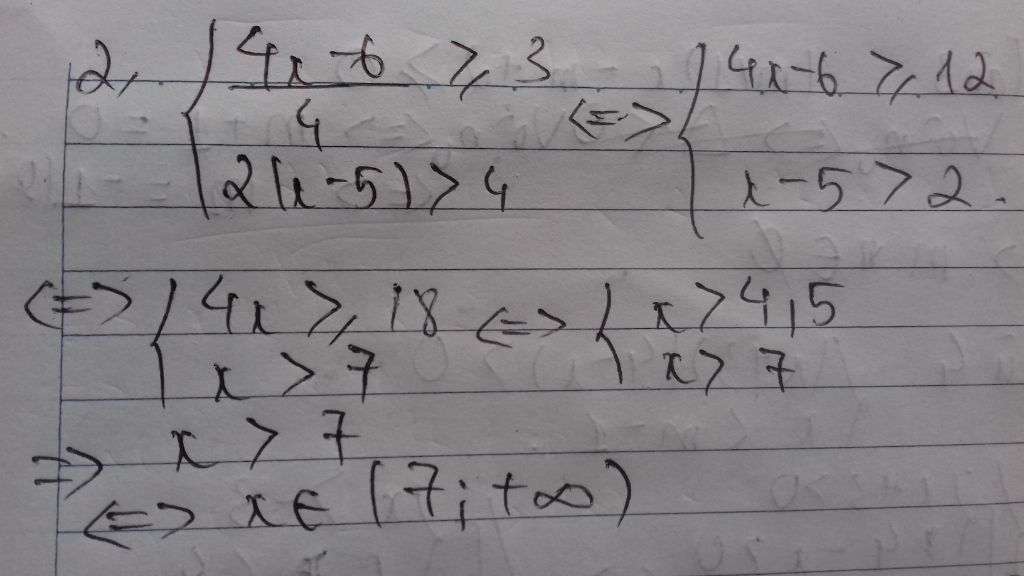 2, { (4x-6)/4 ≥ 3 ; 2(x-5) > 4 <=> { 4x-6 ≥ 12 ; x-5 > 2.
<=> { 4x ≥ 18 ; x > 7 <=> { x > 4,5 ; x > 7
=> x > 7
<=> x ∈ (7; +∞)